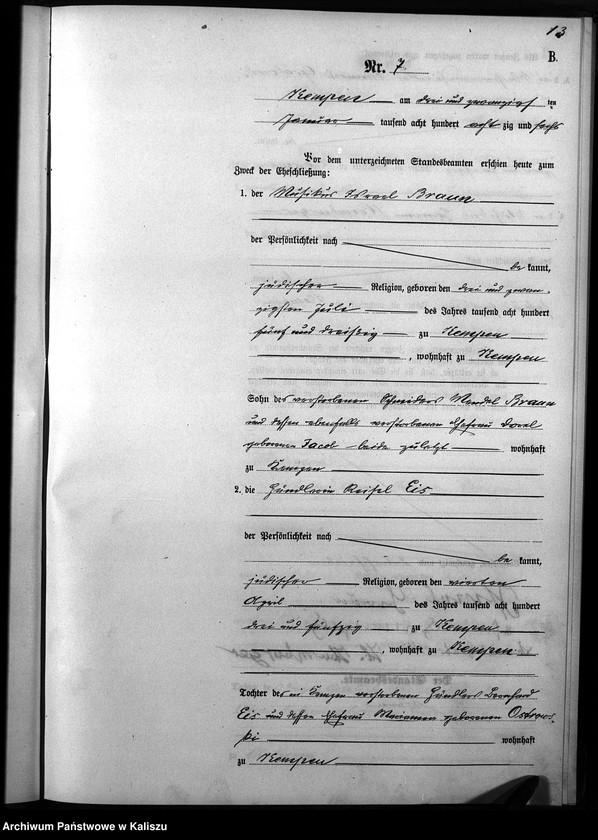 13
B.
Nr. 7
Kempen am drei und zwanzigs ten
Januar tausend acht hundert acht zig und sechs
Vor dem unterzeichneten Standesbeamten erschien heute zum
Zweck der Eheschließung:
1. der Musikus Israel Braun
der Persönlichkeit nach
be kannt,
jüdischer Religion, geboren den drei und zwan-
zigsten Juli des Jahres tausend acht hundert
fünf und dreißig zu Kempen
, wohnhaft zu Kempen
Sohn des verstorbenen Schneiders Mendel Braun
und dessen ebenfalls verstorbenen Ehefrau Dorel
geborenen Jacob beide zuletzt wohnhaft
zu Kempen
2. die Händlerin Reisel Eis
der Persönlichkeit nach
be kannt,
jüdischer Religion, geboren den vierten
April des Jahres tausend acht hundert
drei und fünfzig zu Kempen
, wohnhaft zu Kempen
Tochter des in Kempen verstorbenen Händlers Bernhard
Eis und dessen Ehefrau Mariamm geborenen Ostrows-
ki wohnhaft
zu Kempen
Archiwum Państwowe w Kaliszu